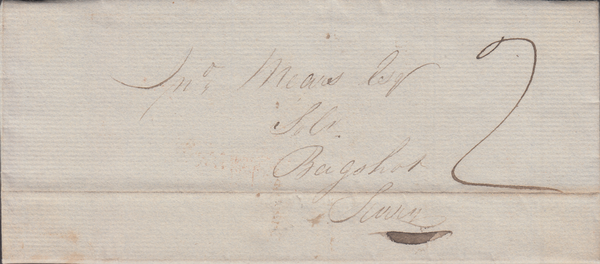 Jno Mears Esqr
Solr
Bagshot
Surrey
2